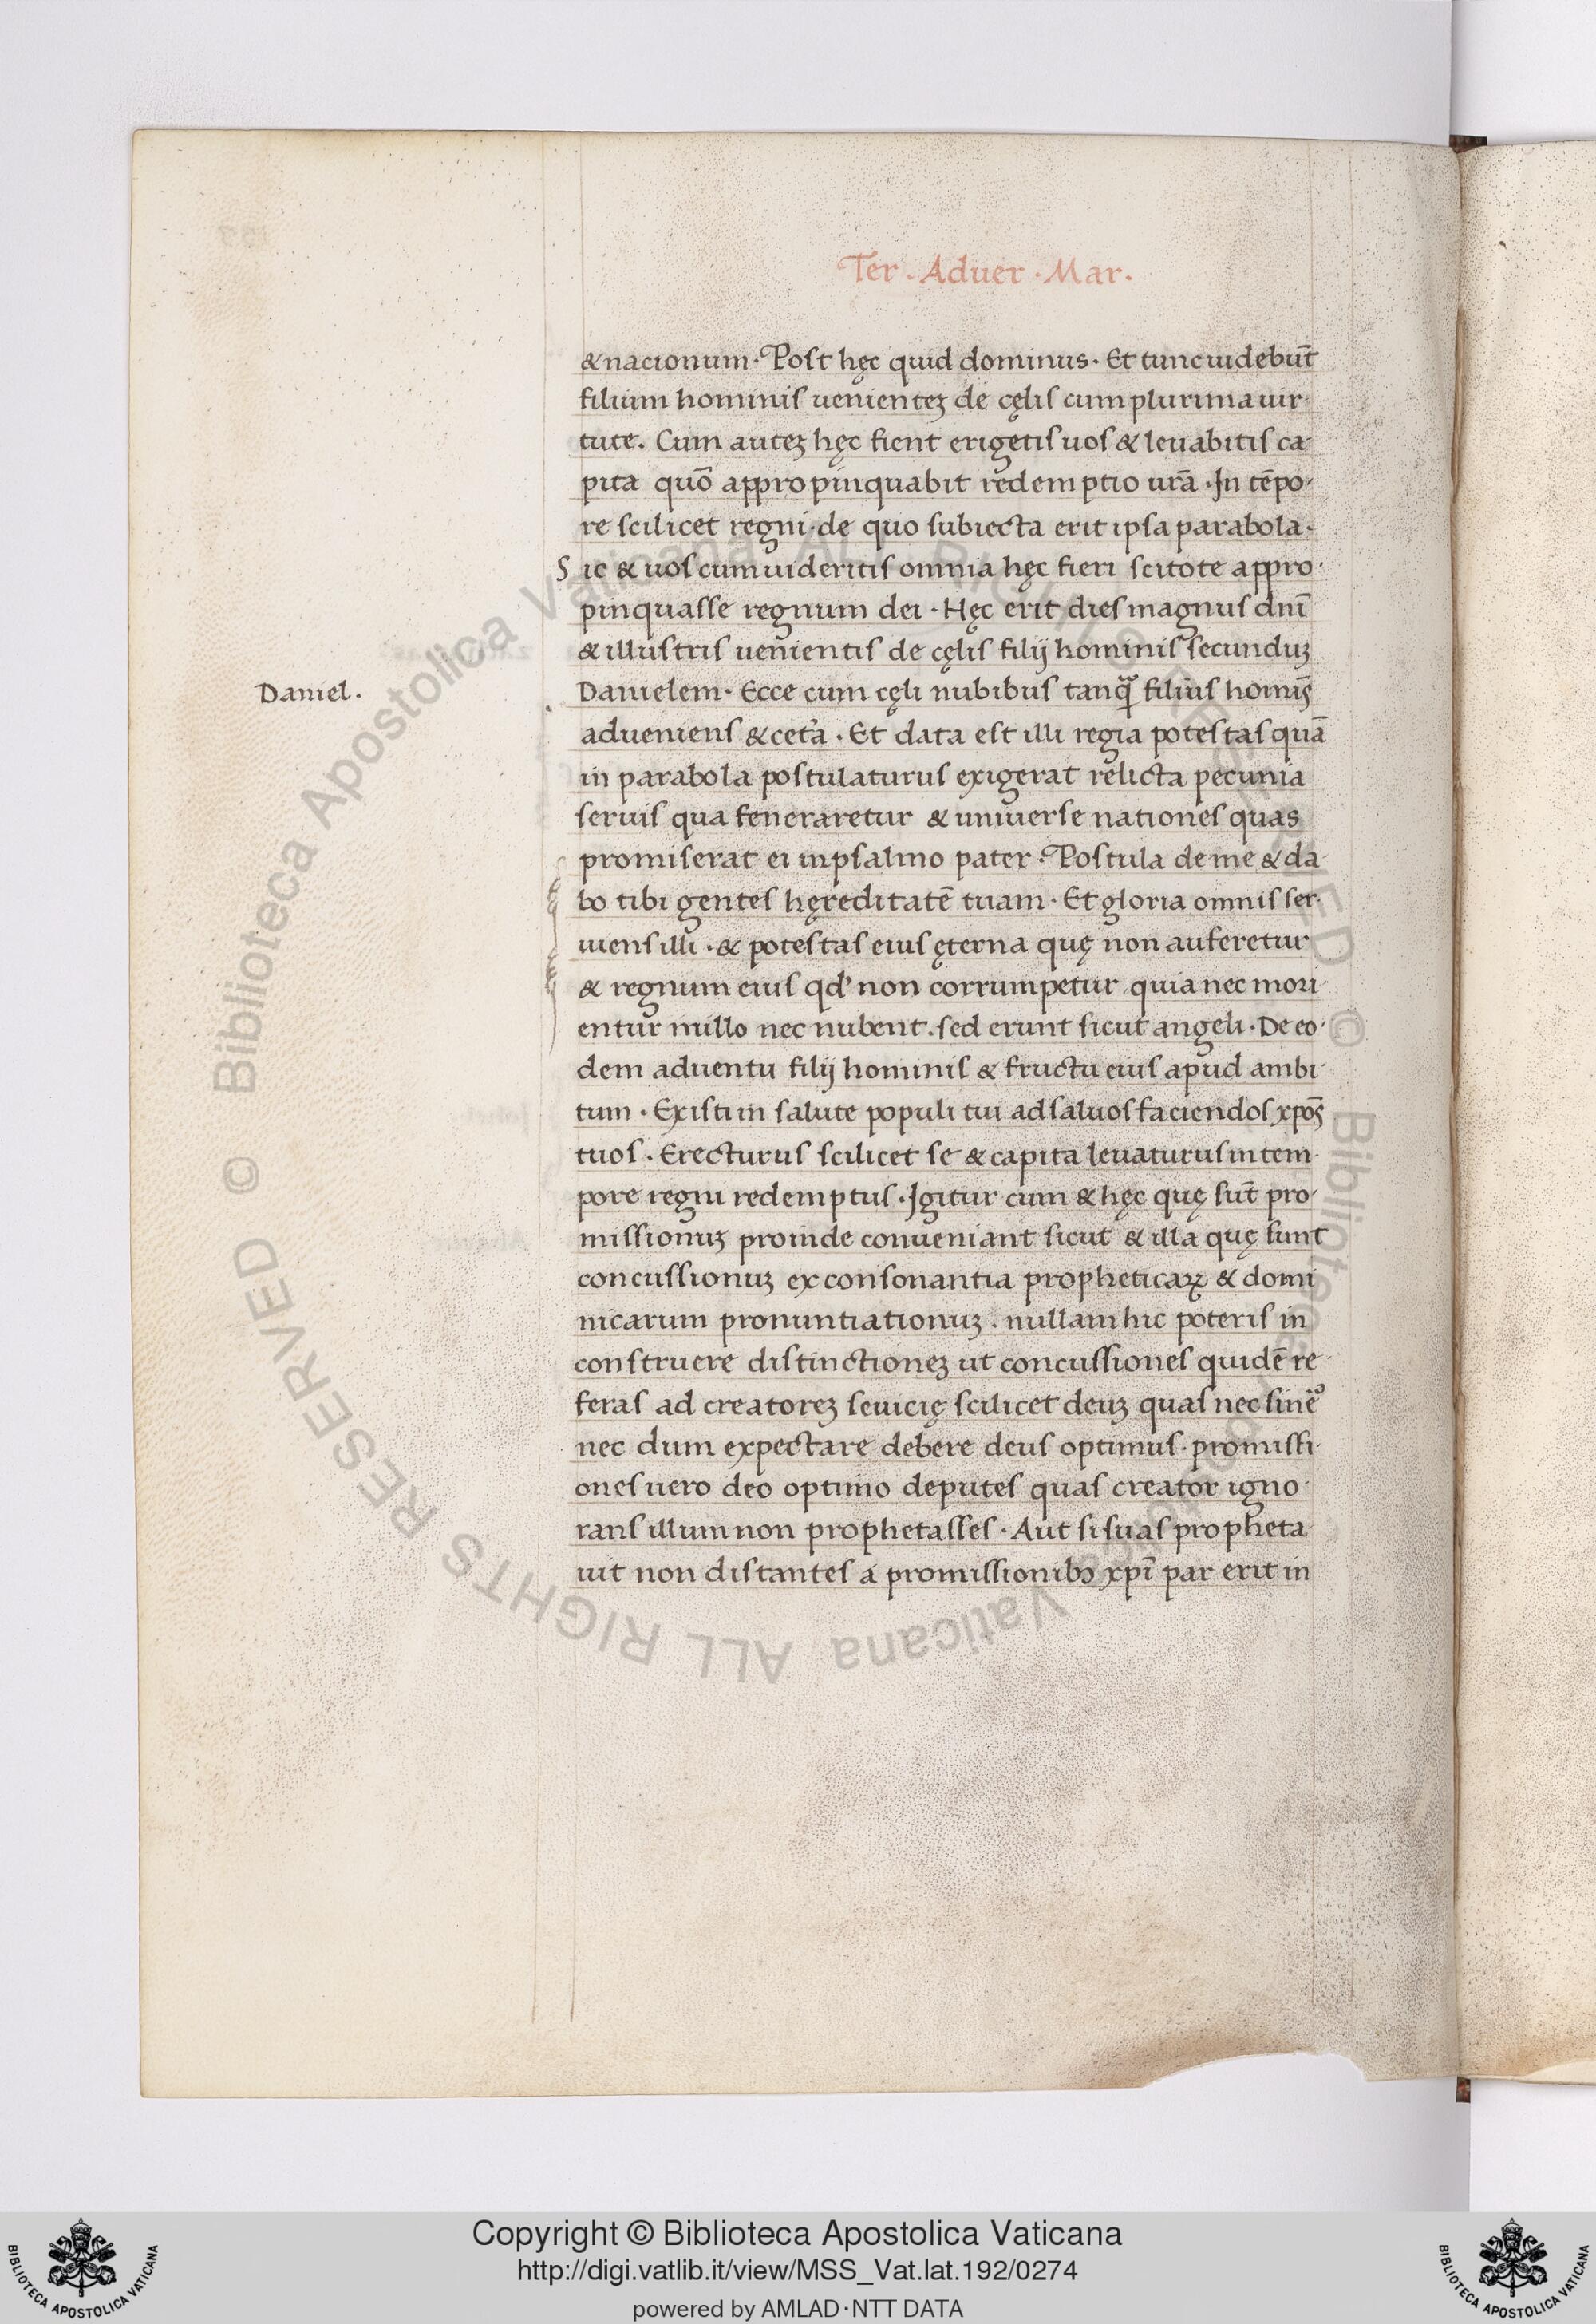 Ter . Aduer . Mar .
& nacionum . Post hęc quid dominus . Et tunc uidebūt
filium hominis uenienteʒ de cęlis cum plurima uir
tute . Cum auteʒ hęc fient erigetis uos & leuabitis ca
pita quō appropinquabit redemptio urā . In tēpo
re scilicet regni . de quo subiecta erit ipsa parabola .
Sic & uos cum uideritis omnia hęc fieri scitote appro
pinquasse regnum dei . Hęc erit dies magnus dnī
& illustris uenientis de cęlis filij hominis secunduʒ
Daniel .
Danielem . Ecce cum cęli nubibus tanq̄ filius homīs
adueniens & cet̃a . Et data est illi regia potestas quā
in parabola postulaturus exigerat relicta pecunia
seruis qua feneraretur & uniuerse nationes quas
promiserat ei in psalmo pater . Postula de me & da
bo tibi gentes hęreditatē tuam . Et gloria omnis ser
uiens illi . & potestas eius ęterna quę non auferetur
& regnum eius qd' non corrumpetur quia nec mori
entur in illo nec nubent . sed erunt sicut angeli . De eo
dem aduentu filij hominis & fructu eius apud ambi
tum . Existi in salute populi tui ad saluos faciendos xpōs
tuos . Erecturus scilicet se & capita leuaturus in tem
pore regni redemptus . Igitur cum & hęc quę sūt pro
missionuʒ proinde conueniant sicut & illa quę sunt
concussionuʒ ex consonantia propheticaꝝ & domi
nicarum pronuntiationuʒ . nullam hic poteris in
construere distinctioneʒ ut concussiones quidē re
feras ad creatoreʒ seuicię scilicet deuʒ quas nec sinẽ
nec dum expectare debere deus optimus . promissi
ones uero deo optimo deputes quas creator igno
rans illum non prophetasses . Aut si suas propheta
uit non distantes a promissionibꝫ xpī par erit in
Copyright © Biblioteca Apostolica Vaticana
http://digi.vatlib.it/view/MSS_Vat.lat.192/0274
powered by AMLAD·NTT DATA